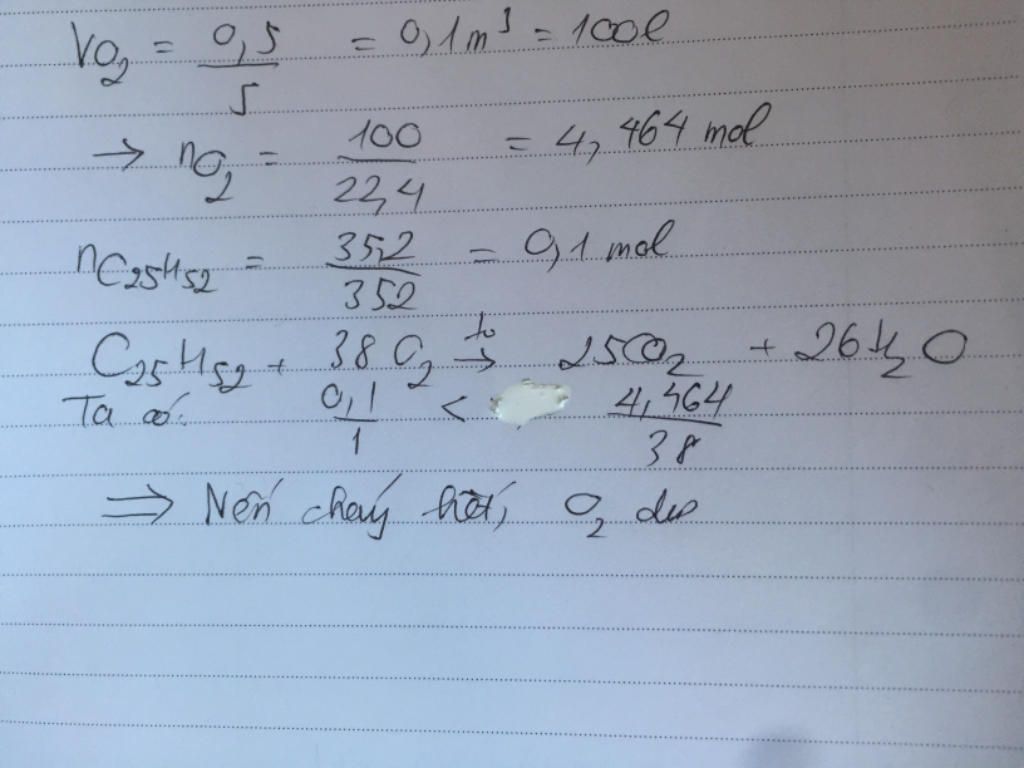 VO₂ = 0,5/5 = 0,1m³ = 100l
→ nO₂ = 100/22,4 = 4,464 mol
nC₂₅H₅₂ = 35,2/352 = 0,1 mol
C₂₅H₅₂ + 38O₂ →(to) 25CO₂ + 26H₂O
Ta có: 0,1/1 < 4,464/38
⇒ Nến cháy hết, O₂ dư